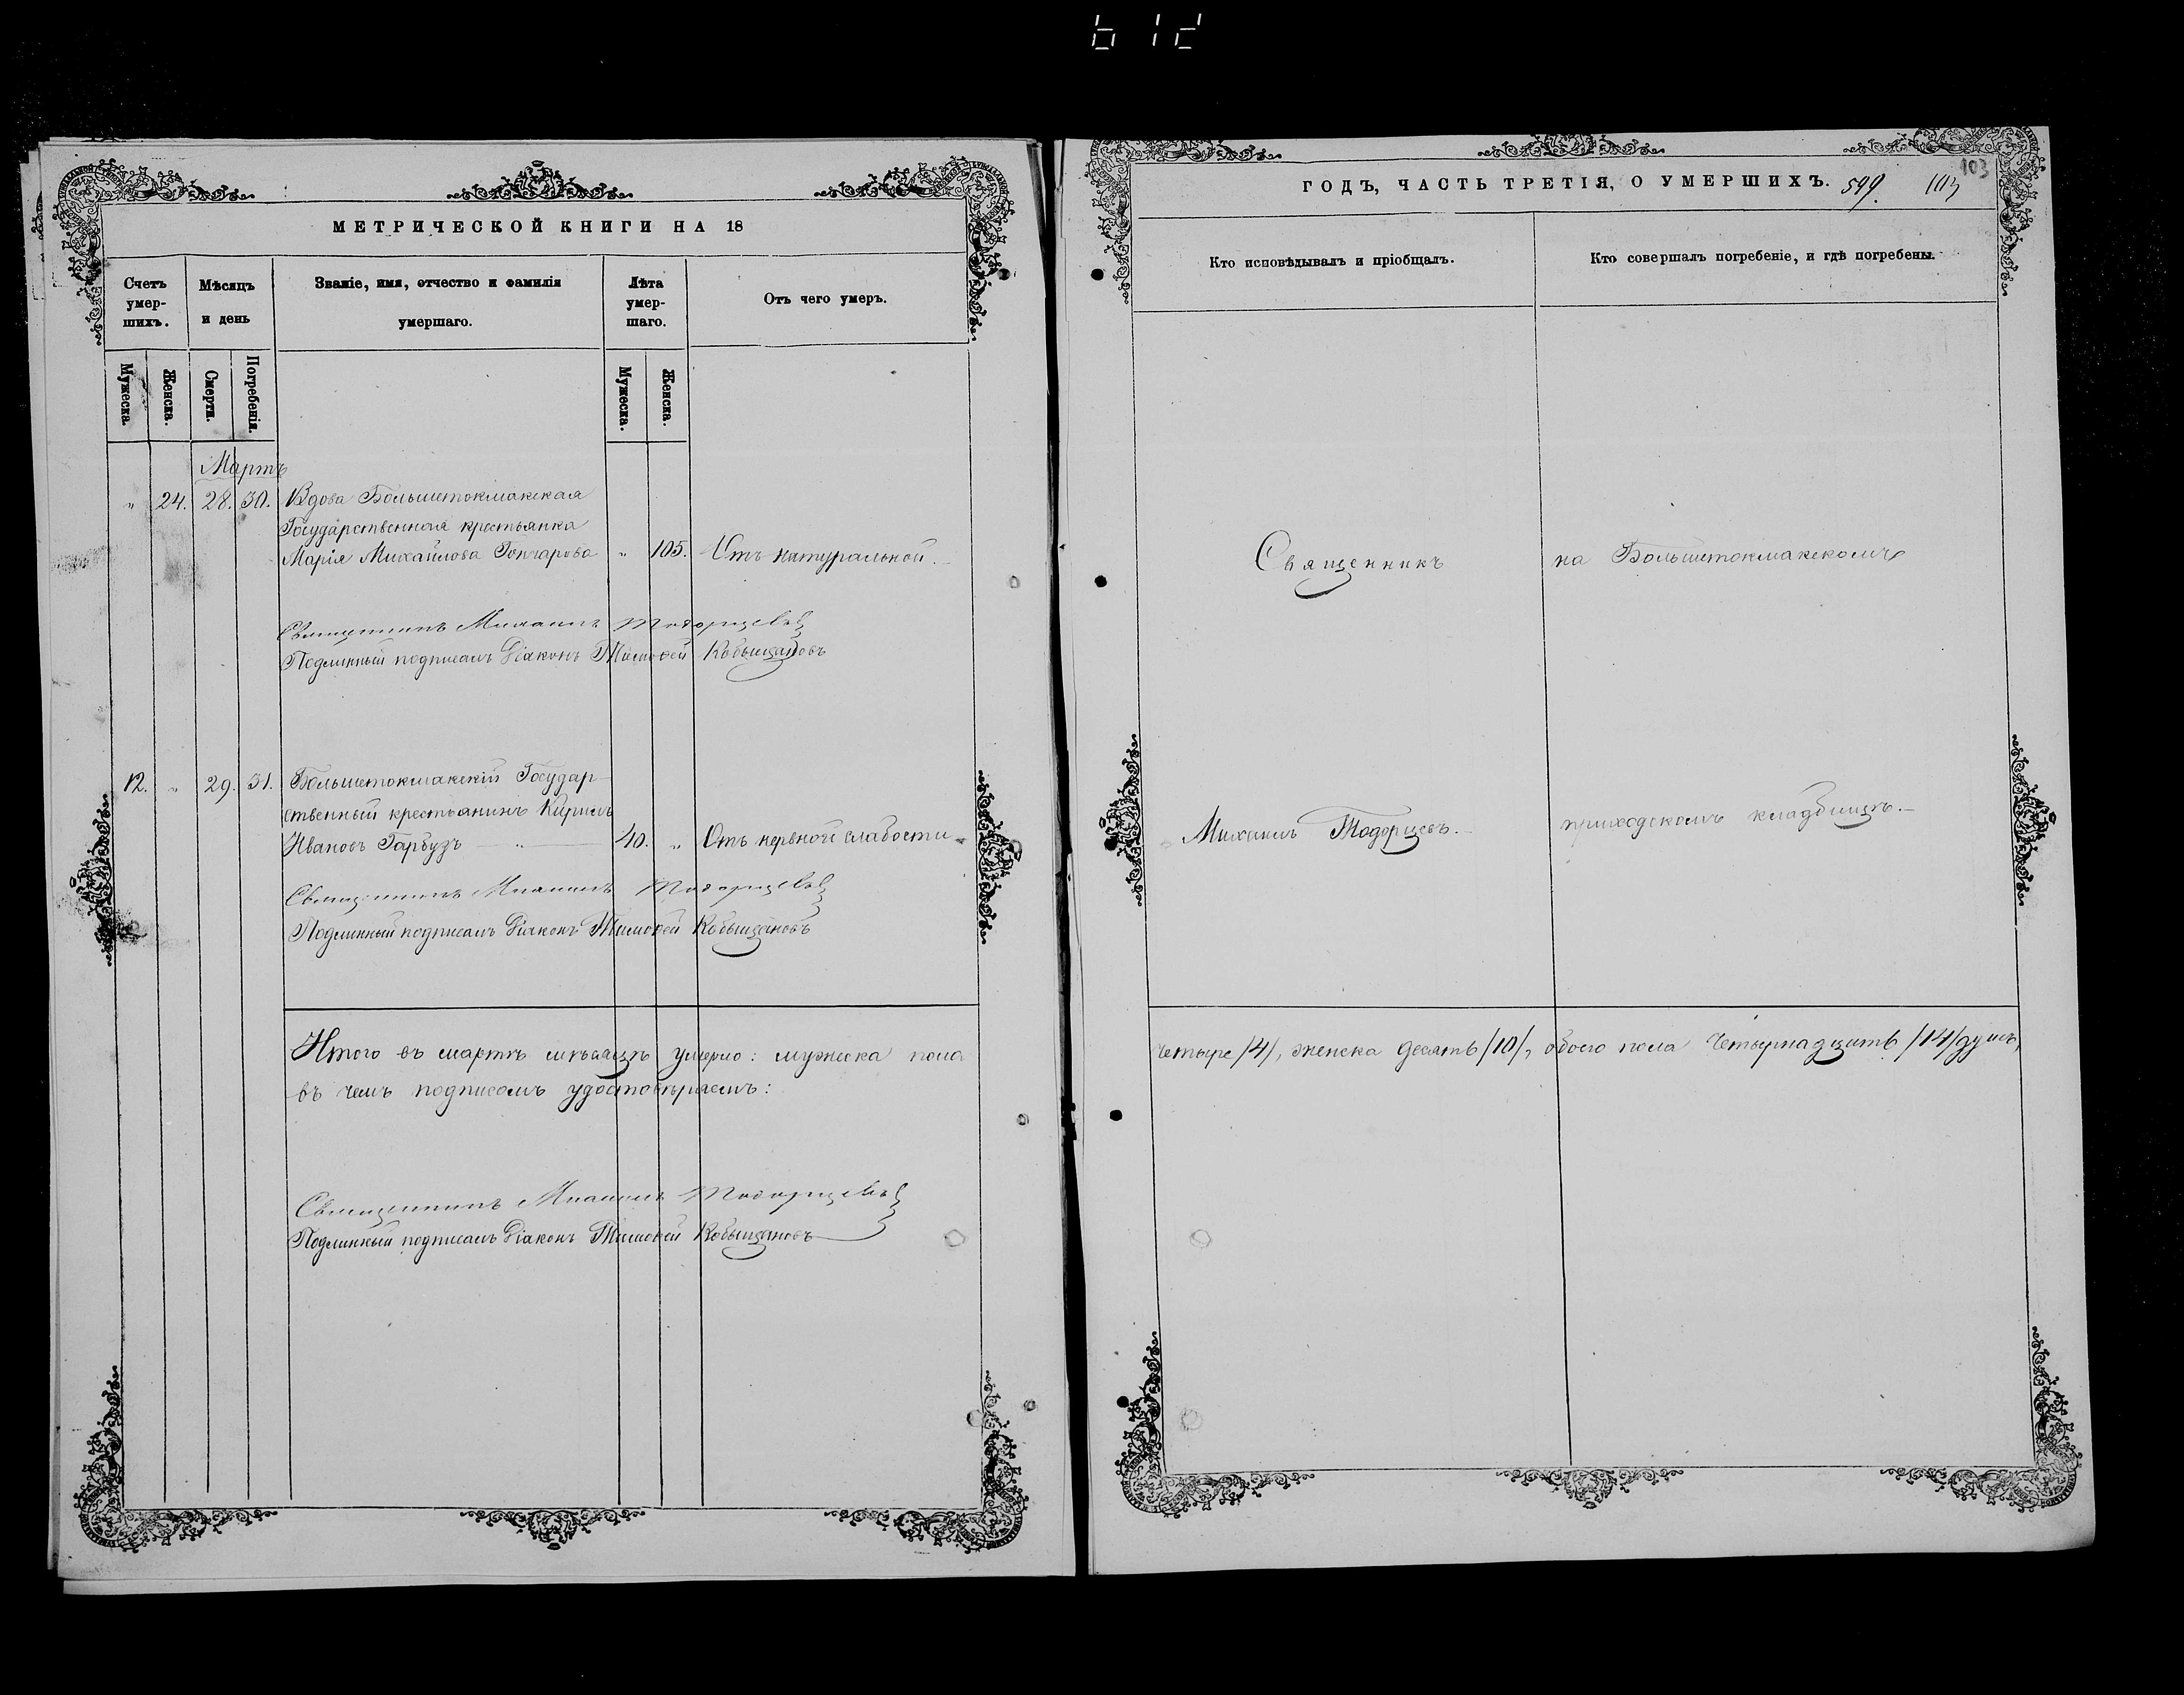 МЕТРИЧЕСКОЙ КНИГИ НА 18
Счетъ умер-шихъ.
Мѣсяцъ и день
Званіе, имя, отчество и фамилія умершаго.
Лѣта умер-шаго.
Отъ чего умеръ.
Мужеска.
Женска.
Смерти.
Погребенія.
Мужеска.
Женска.
Мартъ
" 24. 28. 30. Вдова Большетокмакская
Государственная крестьянка
Марія Михайлова Гончарова " 105. Отъ натуральной.
Священникъ Михаилъ Тодорцевъ
Подлинный подписалъ Діаконъ Тимоѳей Кобыщановъ
12. " 29. 31. Большетокмакскій Государ-
ственный крестьянинъ Кирилъ
Ивановъ Гарбузъ — " — 40. " Отъ нервной слабости
Священникъ Михаилъ Тодорцевъ
Подлинный подписалъ Діаконъ Тимоѳей Кобыщановъ
Итого въ мартѣ мѣсяцѣ умерло: мужеска пола
въ чемъ подписомъ удостовѣряемъ:
Священникъ Михаилъ Тодорцевъ
Подлинный подписалъ Діаконъ Тимоѳей Кобыщановъ
103
ГОДЪ, ЧАСТЬ ТРЕТІЯ, О УМЕРШИХЪ. 599. 103
Кто исповѣдывалъ и пріобщалъ.
Кто совершалъ погребеніе, и гдѣ погребены.
Священникъ
на Большетокмакскомъ
Михаилъ Тодорцевъ.
приходскомъ кладбищѣ.
четыре /4/, женска десять /10/, обоего пола четырнадцать /14/ душъ,